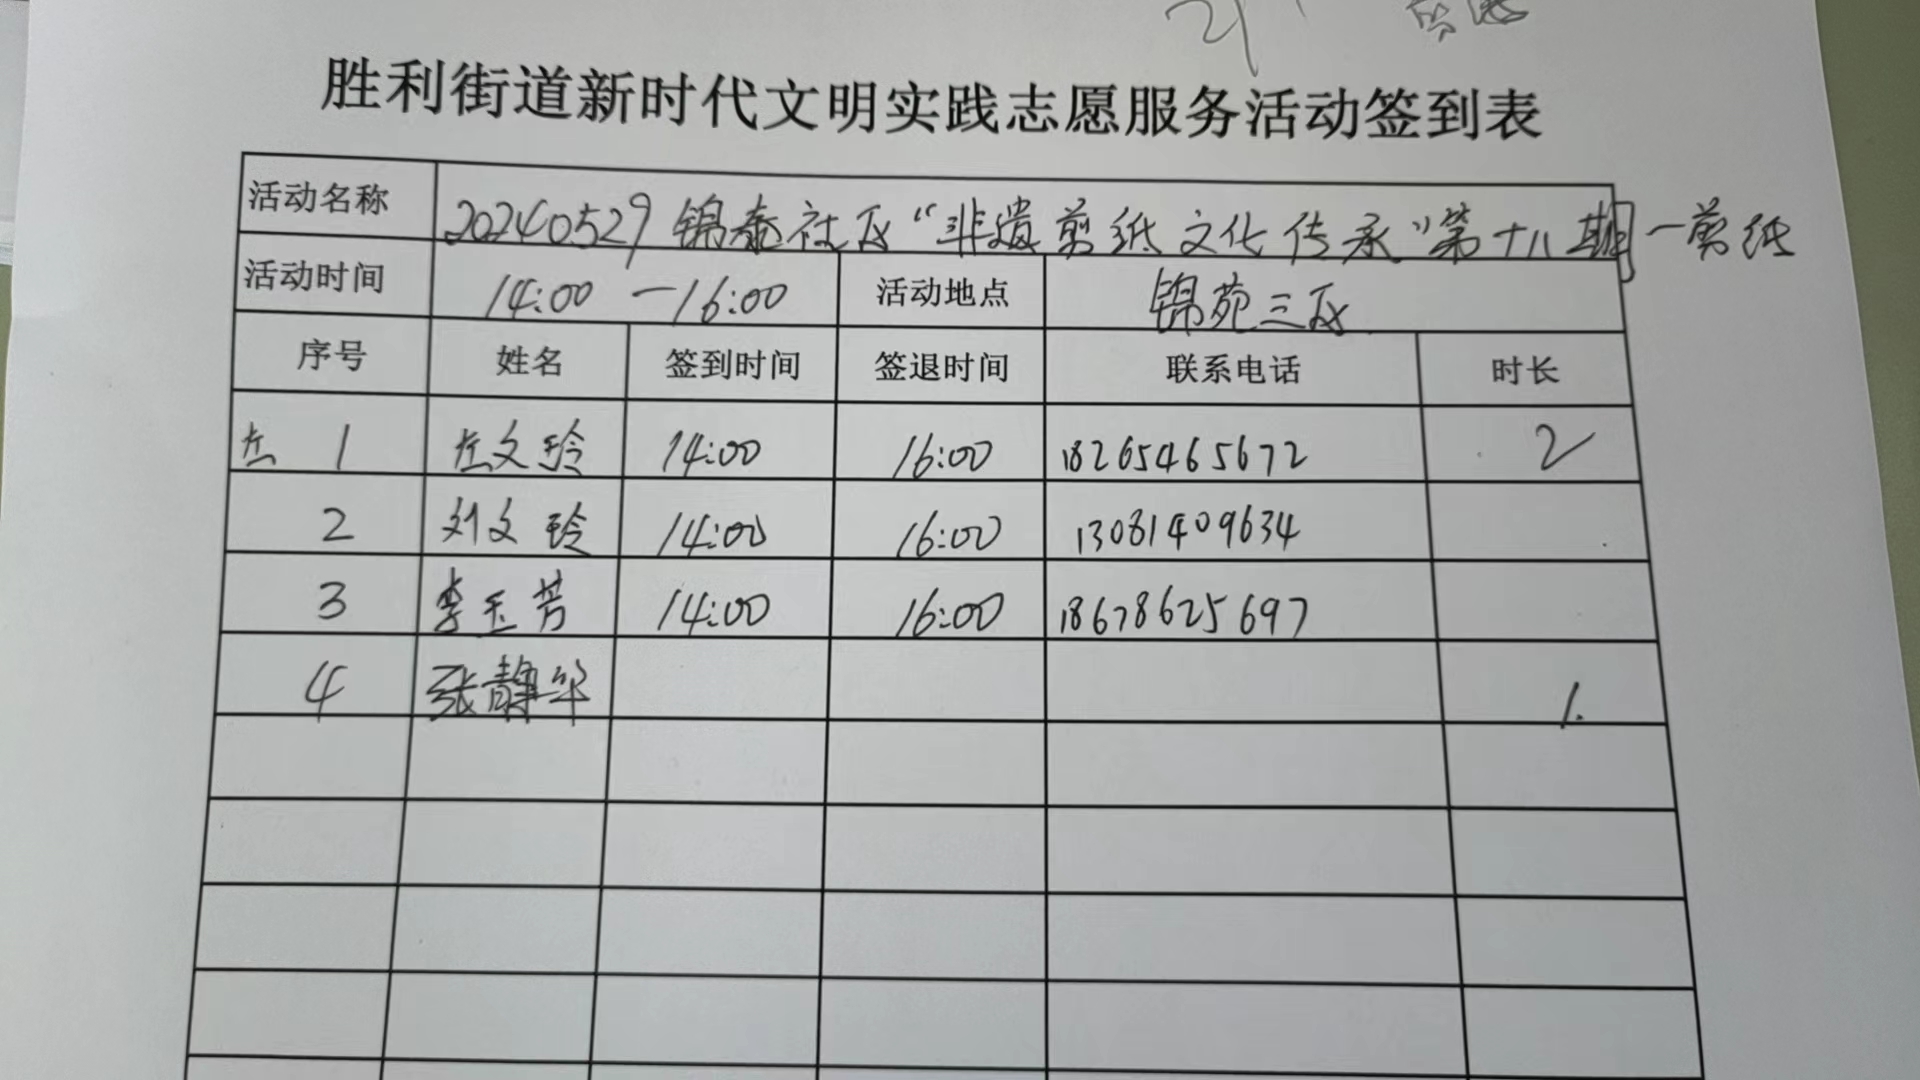 胜利街道新时代文明实践志愿服务活动签到表
活动名称 20240529锦泰社区“非遗剪纸文化传承”第十八期—剪纸
活动时间 14:00—16:00 活动地点 锦苑三区
序号 姓名 签到时间 签退时间 联系电话 时长
1 文玲 14:00 16:00 18265465672 2
2 刘文玲 14:00 16:00 13081409634
3 李玉芳 14:00 16:00 18678625697
4 张静华 1.